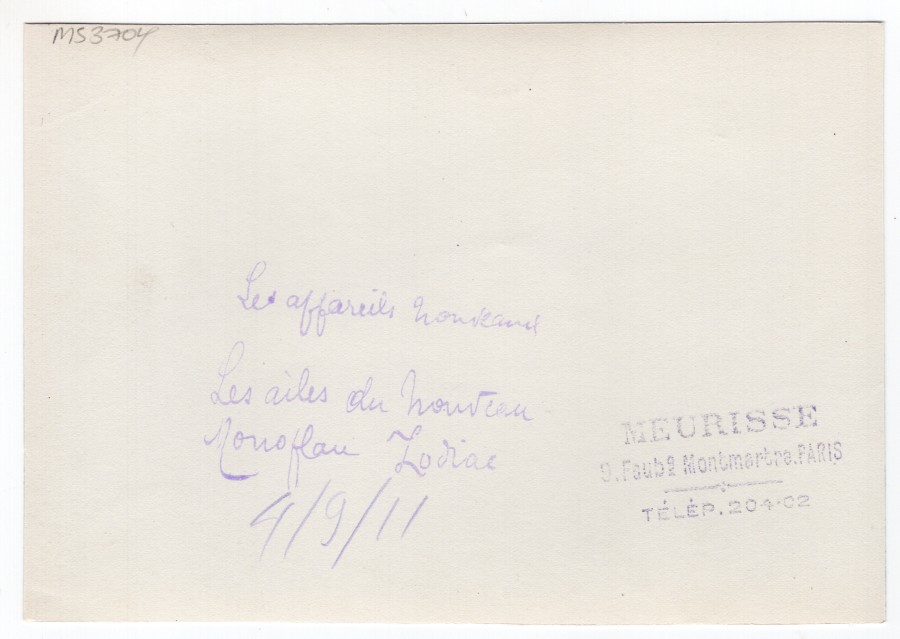 MS3704
Les appareils nouveaux
Les ailes du nouveau
Monoplan Zodiac
4/9/11
MEURISSE
9. Faubg Montmartre. PARIS
TÉLÉP. 204-02